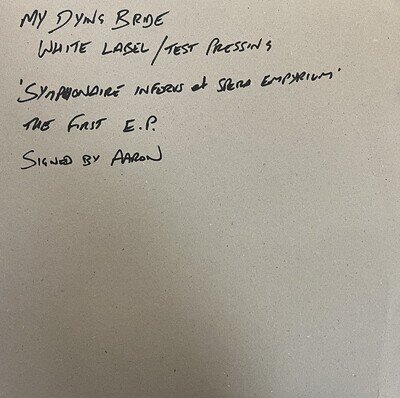 MY DYING BRIDE
WHITE LABEL/TEST PRESSING
'SYMPHONAIRE INFERUS et SPERA EMPYRIUM'
THE FIRST E.P.
SIGNED BY AARON